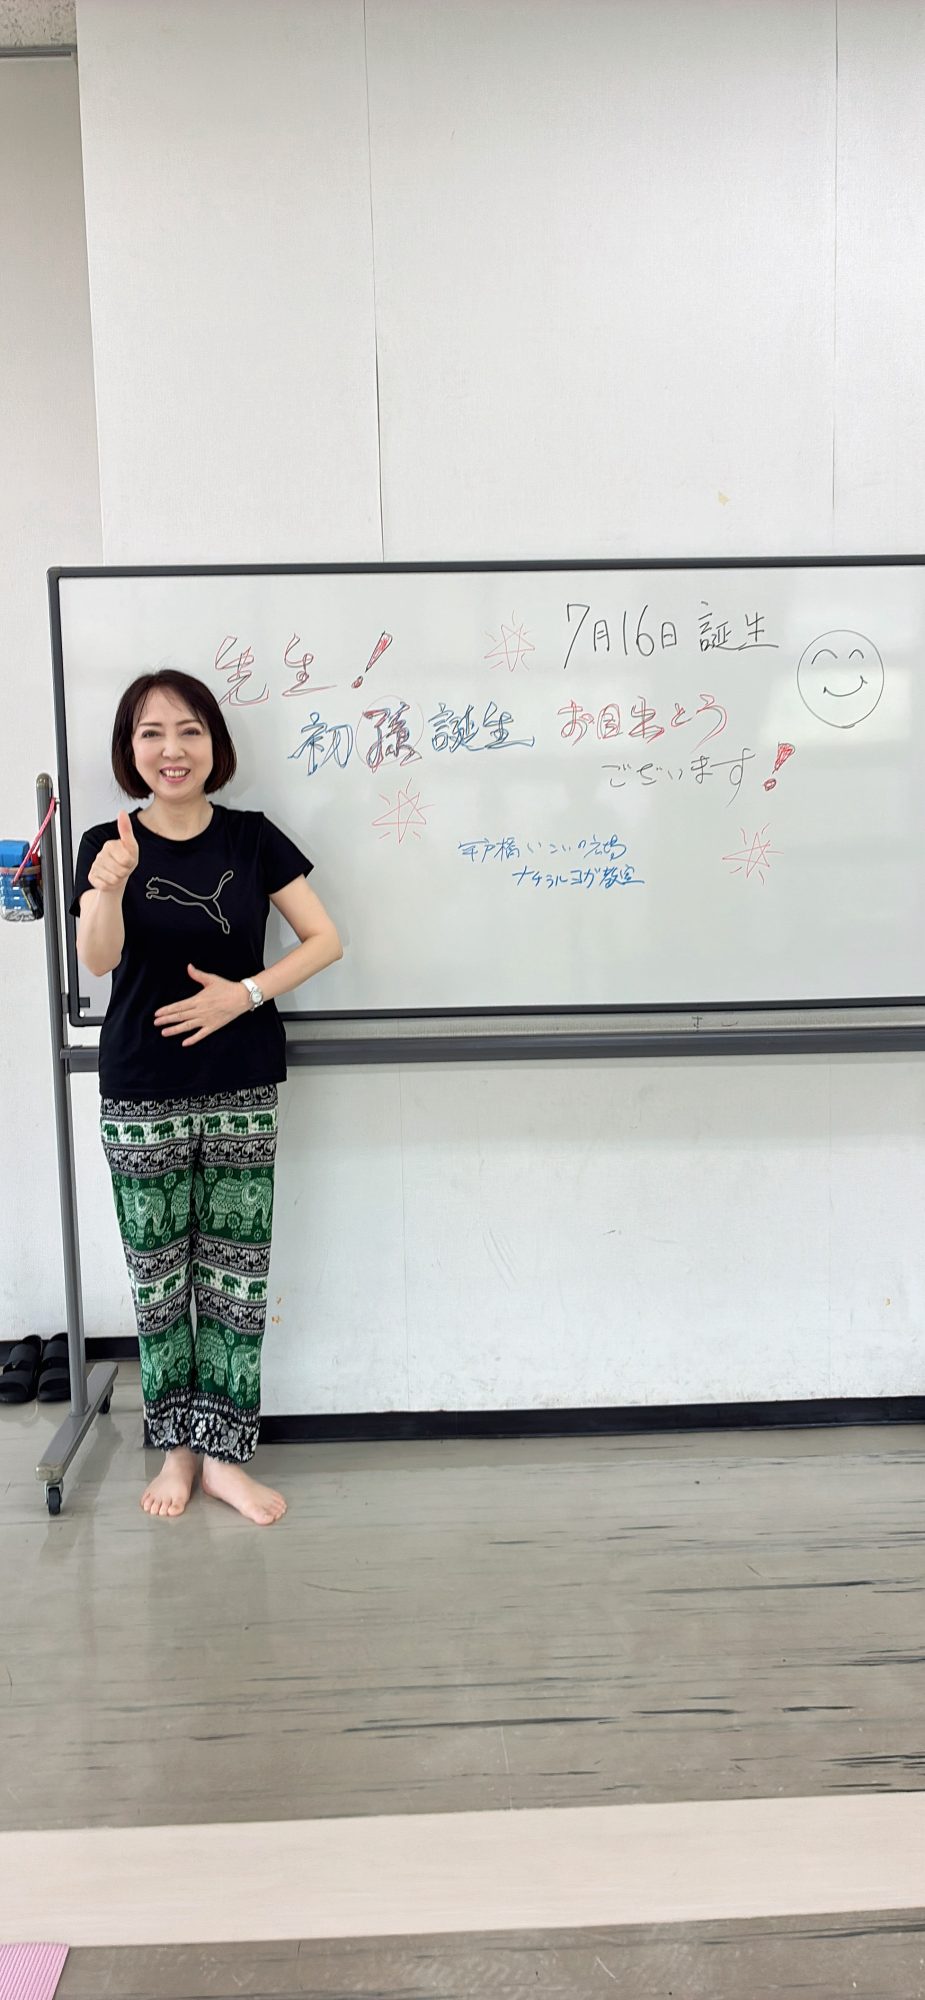 先生!
7月16日 誕生
初孫誕生 お目出とう
ございます!
平戸橋いこいの広場
ナチュラルヨガ教室